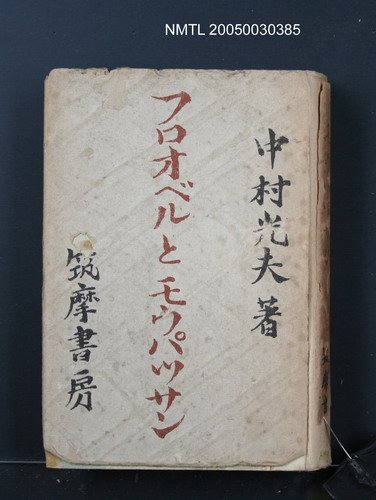 NMTL 20050030385
中村光夫 著
フロオベルとモウパッサン
筑摩書房